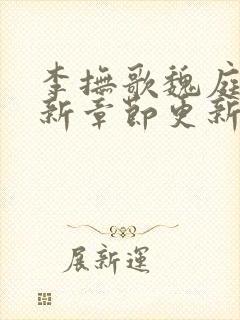 李撫歌魏庭
新章節更新
展新運